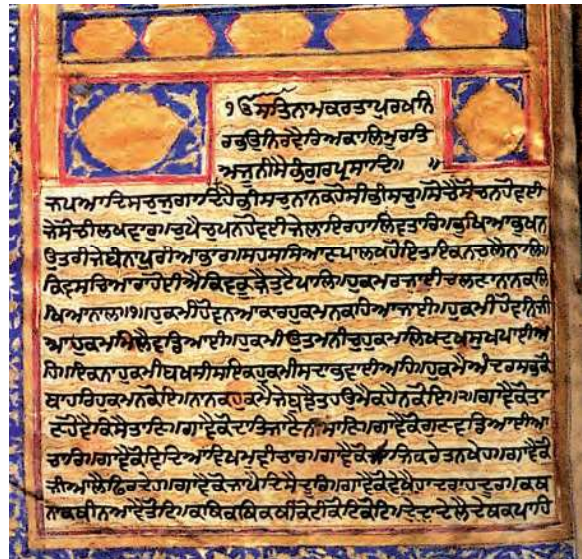 ੴਸਤਿਨਾਮੁਕਰਤਾਪੁਰਖੁਨਿ
ਰਭਉਨਿਰਵੈਰਿਅਕਾਲਿਮੂਰਤਿ
ਅਜੂਨੀਸੈਭੰਗੁਰਪ੍ਰਸਾਦਿ॥ ॥
ਜਪੁਆਦਿਸਚੁਜੁਗਾਦਿਹੈਭੀਸਚੁਨਾਨਕਹੋਸੀਭੀਸਚੁ॥ਸੋਚੈਸੋਚਨਹੋਵਈ
ਜੇਸੋਚੀਲਖਵਾਰ॥ਚੁਪੈਚੁਪਨਹੋਵਈਜੇਲਾਇਰਹਾਲਿਵਤਾਰ॥ਭੁਖਿਆਭੁਖਨ
ਉਤਰੀਜੇਬੰਨਾਪੁਰੀਆਭਾਰ॥ਸਹਸਸਿਆਣਪਾਲਖਹੋਇਤਇਕਨਚਲੈਨਾਲਿ॥
ਕਿਵਸਚਿਆਰਾਹੋਈਐਕਿਵਕੂੜੈਤੁਟੈਪਾਲਿ॥ਹੁਕਮਰਜਾਈਚਲਣਾਨਾਨਕਲਿ
ਖਿਆਨਾਲ॥੧॥ਹੁਕਮੀਹੋਵਨਆਕਾਰਹੁਕਮਨਕਹਿਆਜਾਈ॥ਹੁਕਮੀਹੋਵਨਿਜੀ
ਆਹੁਕਮਿਮਿਲੈਵਡਿਆਈ॥ਹੁਕਮੀਉਤਮਨੀਚੁਹੁਕਮਲਿਖਦੁਖਸੁਖਪਾਈਅ
ਹਿ॥ਇਕਨਾਹੁਕਮੀਬਖਸੀਸਇਕਹੁਕਮੀਸਦਾਭਵਾਈਅਹਿ॥ਹੁਕਮੈਅੰਦਰਸਭੁਕੋ
ਬਾਹਰਿਹੁਕਮਨਕੋਇ॥ਨਾਨਕਹੁਕਮੈਜੇਬੁਝੈਤਹਉਮੈਕਹੈਨਕੋਇ॥੨॥ਗਾਵੈਕੋਤਾ
ਣਹੋਵੈਕਿਸੈਤਾਣਿ॥ਗਾਵੈਕੋਦਾਤਿਜਾਣੈਨੀਸਾਣਿ॥ਗਾਵੈਕੋਗੁਣਵਡਿਆਈਆ
ਚਾਰਿ॥ਗਾਵੈਕੋਵਿਦਿਆਵਿਖਮੁਵੀਚਾਰ॥ਗਾਵੈਕੋਸਾਜਿਕਰੇਤਨਖੇਹ॥ਗਾਵੈਕੋ
ਜੀਆਲੈਫਿਰਦੇਹ॥ਗਾਵੈਕੋਜਾਪੈਦਿਸੈਦੂਰਿ॥ਗਾਵੈਕੋਵੇਖੈਹਾਦਰਾਹਦੂਰ॥ਕਥ
ਨਾਕਥੀਨਆਵੈਤੋਟਿ॥ਕਥਿਕਥਿਕਥੀਕੋਟੀਕੋਟਿਕੋਟਿ॥ਦੇਦਾਦੇਲੈਦੇਥਕਪਾਹਿ